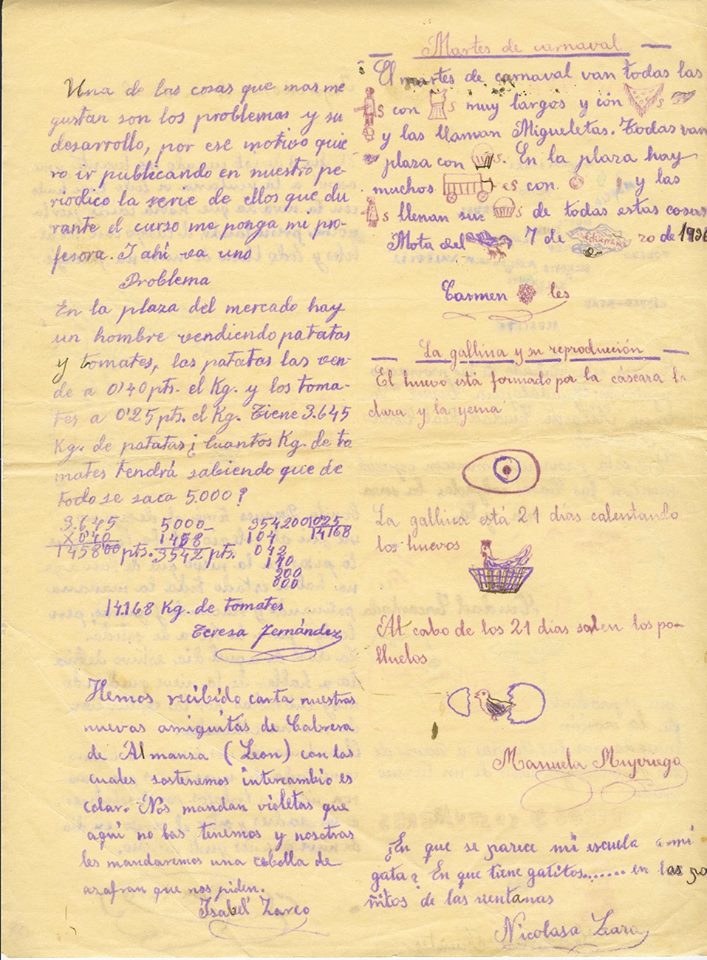 Una de las cosas que mas me
gustan son los problemas y su
desarrollo, por ese motivo quie
ro ir publicando en nuestro pe-
riodico la serie de ellos que du
rante el curso me ponga mi pro-
fesora. Y ahi va uno
Problema
En la plaza del mercado hay
un hombre vendiendo patatas
y tomates, las patatas las ven-
de a 0'40 pts. el Kg. y los toma-
tes a 0'25 pts. el Kg. Tiene 3.645
Kg. de patatas ¿ Cuantos Kg. de to
mates tendrá sabiendo que de
todo se saca 5.000?
3.645
X0'40
145800 pts.
5000
1458
3542 pts.
354200 025
104 14168
042
170
200
000
14.168 Kg. de tomates
Teresa Fernández
Hemos recibido carta nuestras
nuevas amiguitas de Cabrera
de Almanza (Leon) con las
cuales sostenemos intercambio es
colar. Nos mandan violetas que
aqui no las tenemos y nosotras
les mandaremos una cebolla de
azafran que nos piden.
Isabel Zarco
Martes de carnaval
El martes de carnaval van todas las
s con s muy largos y con s
y las llaman Migueletas. Todas van
plaza con s. En la plaza hay
muchos es con y las
s llenan sus s de todas estas cosas
Mota del 7 de ro de 1936
Carmen les
La gallina y su reproducción
El huevo está formado por la cáscara la
clara y la yema
La gallina está 21 días calentando
los huevos
Al cabo de los 21 días salen los po-
lluelos
Manuela
¿En que se parece mi escuela a mi
gata? En que tiene gatitos....... en las
ñitos de las ventanas
Nicolasa Lara